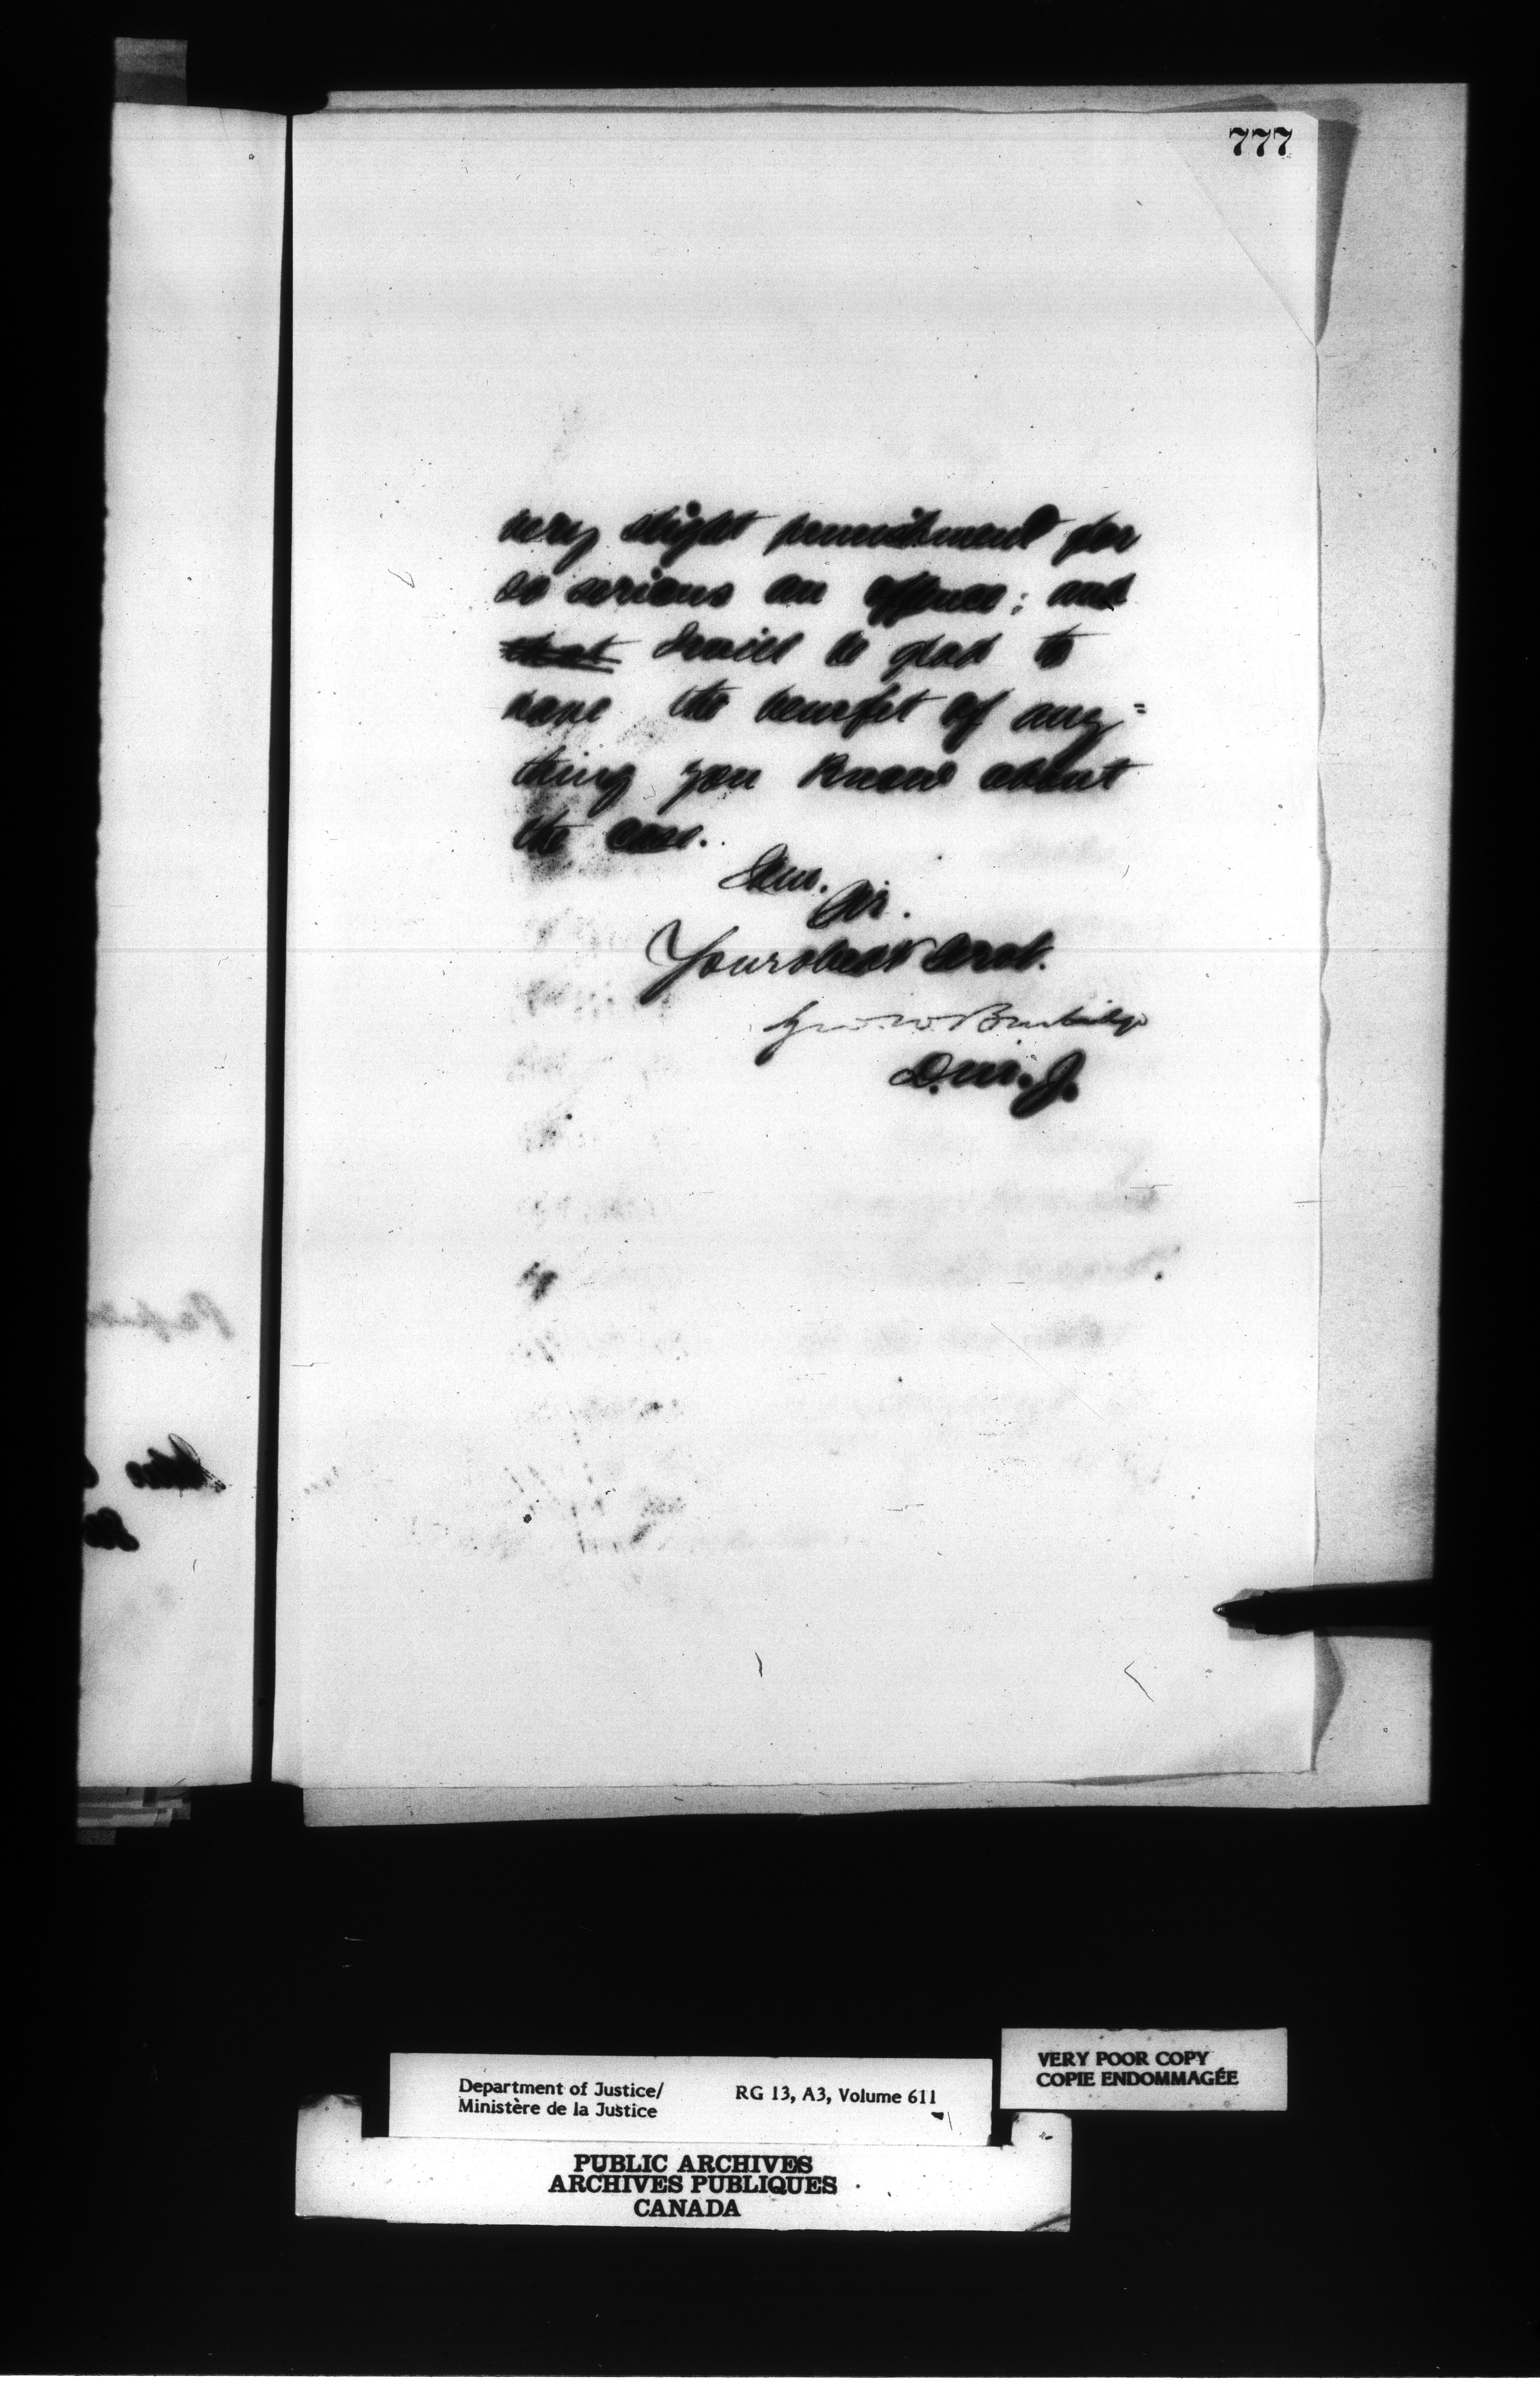 777
very slight punishment for
so serious an offence; and
that I will be glad to
have the benefit of any=
thing you know about
the case.
I am.
Sir.
Your obedt Servt.
Geo. W. Burbidge
D.M.J.
VERY POOR COPY
COPIE ENDOMMAGÉE
Department of Justice/ RG 13, A3, Volume 611
Ministère de la Justice
PUBLIC ARCHIVES
ARCHIVES PUBLIQUES
CANADA